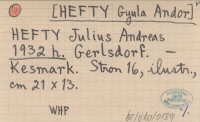 [HEFTY Gyula Andor]
HEFTY Julius Andreas
1932 h. Gerlsdorf. –
Kesmark. Stron 16, ilustr.,
cm 21 x 13.
WHP